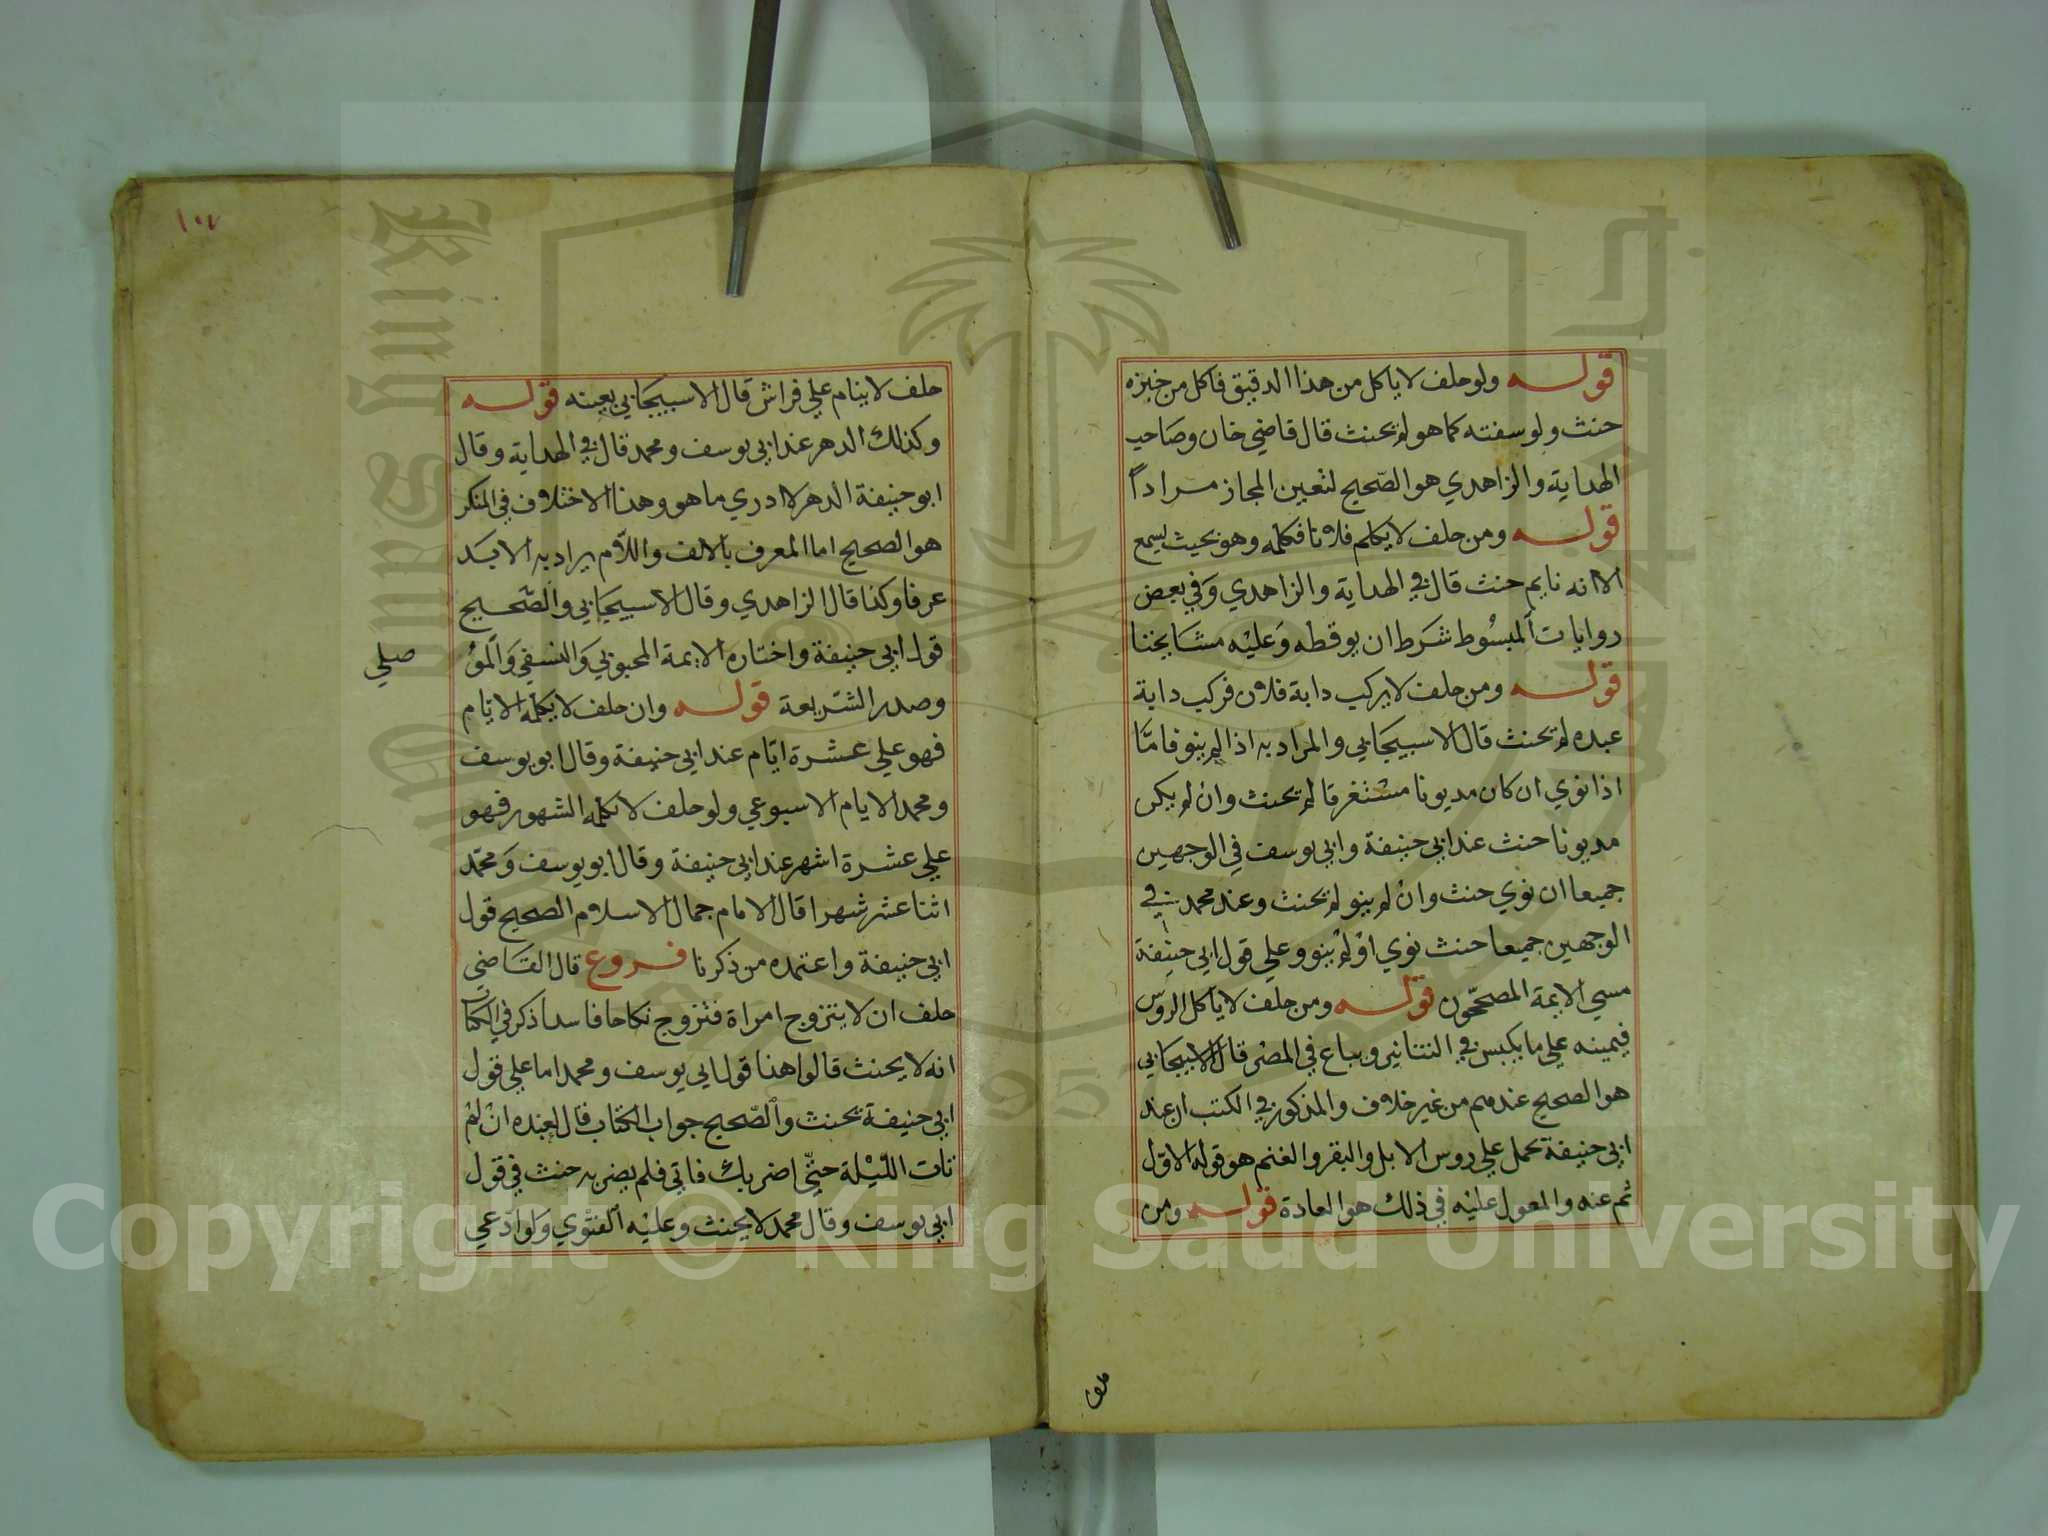 قوله ولو حلف لا ياكل من هذا الدقيق فاكل من خبزه
حنث ولو سفته كما هو لم يحنث قال قاضي خان وصاحب
الهداية والزاهدي هو الصحيح لتعين المجاز مرادا
قوله ومن حلف لا يكلم فلانا فكلمه وهو بحيث يسمع
الا انه نايم حنث قال في الهداية والزاهدي وفي بعض
روايات المبسوط شرط ان يوقظه وعليه مشايخنا
قوله ومن حلف لا يركب دابة فلان فركب دابة
عبده لم يحنث قال الاسبيجابي والمراد به اذا لم ينو فاما
اذا نوي ان كان مديونا مستغرقا لم يحنث وان لم يكن
مديونا حنث عند ابي حنيفة وابي يوسف في الوجهين
جميعا ان نوي حنث وان لم ينو لم يحنث وعند محمد في
الوجهين جميعا حنث نوي او لم ينو وعلي قول ابي حنيفة
مسي الايمة المصححون قوله ومن حلف لا ياكل الروس
فيمينه علي ما يكبس في التنانير ويباع في المصر قال الاسبيجابي
هو الصحيح عندهم من غير خلاف والمذكور في الكتب ان عند
ابي حنيفة يحمل علي روس الابل والبقر والغنم هو قوله الاول
ثم عنه والمعول عليه في ذلك هو العادة قوله ومن
١٠٧
حلف لا ينام علي فراش قال الاسبيجابي بعينه قوله
وكذلك الدهر عند ابي يوسف ومحمد قال في الهداية وقال
ابو حنيفة الدهر لا ادري ما هو وهذا الاختلاف في المنكر
هو الصحيح اما المعرف بالالف واللام يراد به الابد
عرفا وكذا قال الزاهدي وقال الاسبيجابي والصحيح
قول ابي حنيفة واختاره الايمة المحبوبي والنسفي والمو
صلي
وصدر الشريعة قوله وان حلف لا يكلمه الايام
فهو علي عشرة ايام عند ابي حنيفة وقال ابو يوسف
ومحمد الايام الاسبوعي ولو حلف لا يكلمه الشهور فهو
علي عشرة اشهر عند ابي حنيفة وقال ابو يوسف ومحمد
اثنا عشر شهرا قال الامام جمال الاسلام الصحيح قول
ابي حنيفة واعتمده من ذكرنا فروع قال القاضي
حلف ان لا يتزوج امراة فتزوج نكاحا فاسدا ذكر في الكتاب
انه لا يحنث قالوا هذا قول ابي يوسف ومحمد اما علي قول
ابي حنيفة يحنث والصحيح جواب الكتاب قال لعبده ان لم
تات الليلة حتي اضربك فاتي فلم يضربه حنث في قول
ابي يوسف وقال محمد لا يحنث وعليه الفتوي ولو ادعي
King Saud University
1957
Copyright © King Saud University